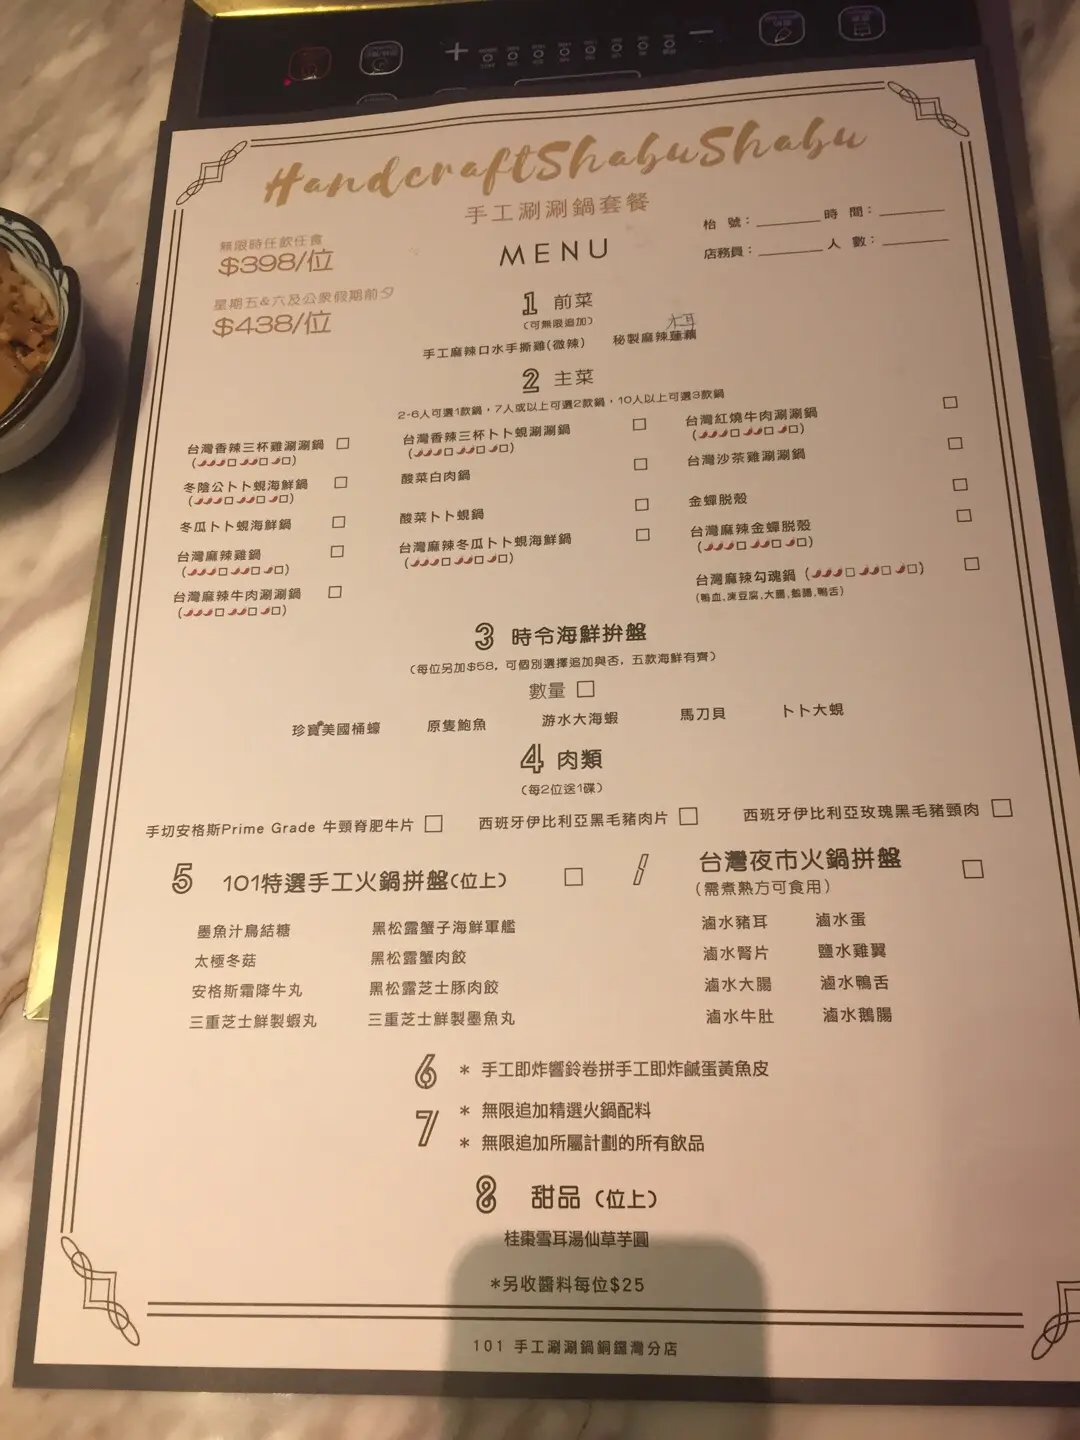 HandcraftShabuShabu
手工涮涮鍋套餐
MENU
無限時任飲任食
$398/位
星期五&六及公眾假期前夕
$438/位
枱 號：
時 間：
店務員：
人 數：
1 前菜
(可無限追加)
手工麻辣口水手撕雞(微辣)
秘製麻辣蓮藕
木耳
2 主菜
2-6人可選1款鍋，7人或以上可選2款鍋，10人以上可選3款鍋
台灣香辣三杯雞涮涮鍋
冬陰公卜卜蜆海鮮鍋
冬瓜卜卜蜆海鮮鍋
台灣麻辣雞鍋
台灣麻辣牛肉涮涮鍋
台灣香辣三杯卜卜蜆涮涮鍋
酸菜白肉鍋
酸菜卜卜蜆鍋
台灣麻辣冬瓜卜卜蜆海鮮鍋
台灣紅燒牛肉涮涮鍋
台灣沙茶雞涮涮鍋
金蟬脱殼
台灣麻辣金蟬脱殼
台灣麻辣勾魂鍋
(鴨血,凍豆腐,大腸,鵝腸,鴨舌)
3 時令海鮮拚盤
(每位另加$58，可個別選擇追加與否，五款海鮮有齊)
數量
珍寶美國桶蠔 原隻鮑魚 游水大海蝦 馬刀貝 卜卜大蜆
4 肉類
(每2位送1碟)
手切安格斯Prime Grade 牛頸脊肥牛片
西班牙伊比利亞黑毛豬肉片
西班牙伊比利亞玫瑰黑毛豬頸肉
5 101特選手工火鍋拼盤(位上)
墨魚汁鳥結糖
太極冬菇
安格斯霜降牛丸
三重芝士鮮製蝦丸
黑松露蟹子海鮮軍艦
黑松露蟹肉餃
黑松露芝士豚肉餃
三重芝士鮮製墨魚丸
/
台灣夜市火鍋拼盤
(需煮熟方可食用)
滷水豬耳
滷水腎片
滷水大腸
滷水牛肚
滷水蛋
鹽水雞翼
滷水鴨舌
滷水鵝腸
6 * 手工即炸響鈴卷拼手工即炸鹹蛋黃魚皮
7 * 無限追加精選火鍋配料
* 無限追加所屬計劃的所有飲品
8 甜品 (位上)
桂棗雪耳湯仙草芋圓
*另收醬料每位$25
101 手工涮涮鍋銅鑼灣分店